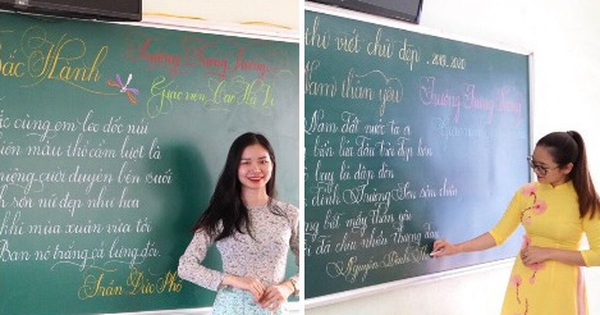 Sắc Hành
Trường Trưng Vương
Giáo viên: Cao Hà
cùng em leo dốc núi
màu thổ cẩm lượt là
cười duyên bên suối
sơn nữ đẹp như hoa
khi mùa xuân vừa tới
Ban nở trắng cả lưng đồi.
Trần Đức Phổ
thi viết chữ đẹp . 2019. 2020
Nam thân yêu
Trường Trưng Vương
Giáo viên
Nam đất nước ta ơi
biển lúa đâu trời đẹp hơn
lả dập dờn
đỉnh Trường Sơn sớm chiều
biết mấy thân yêu
đã chịu nhiều thương đau
Nguyễn Đình Thi